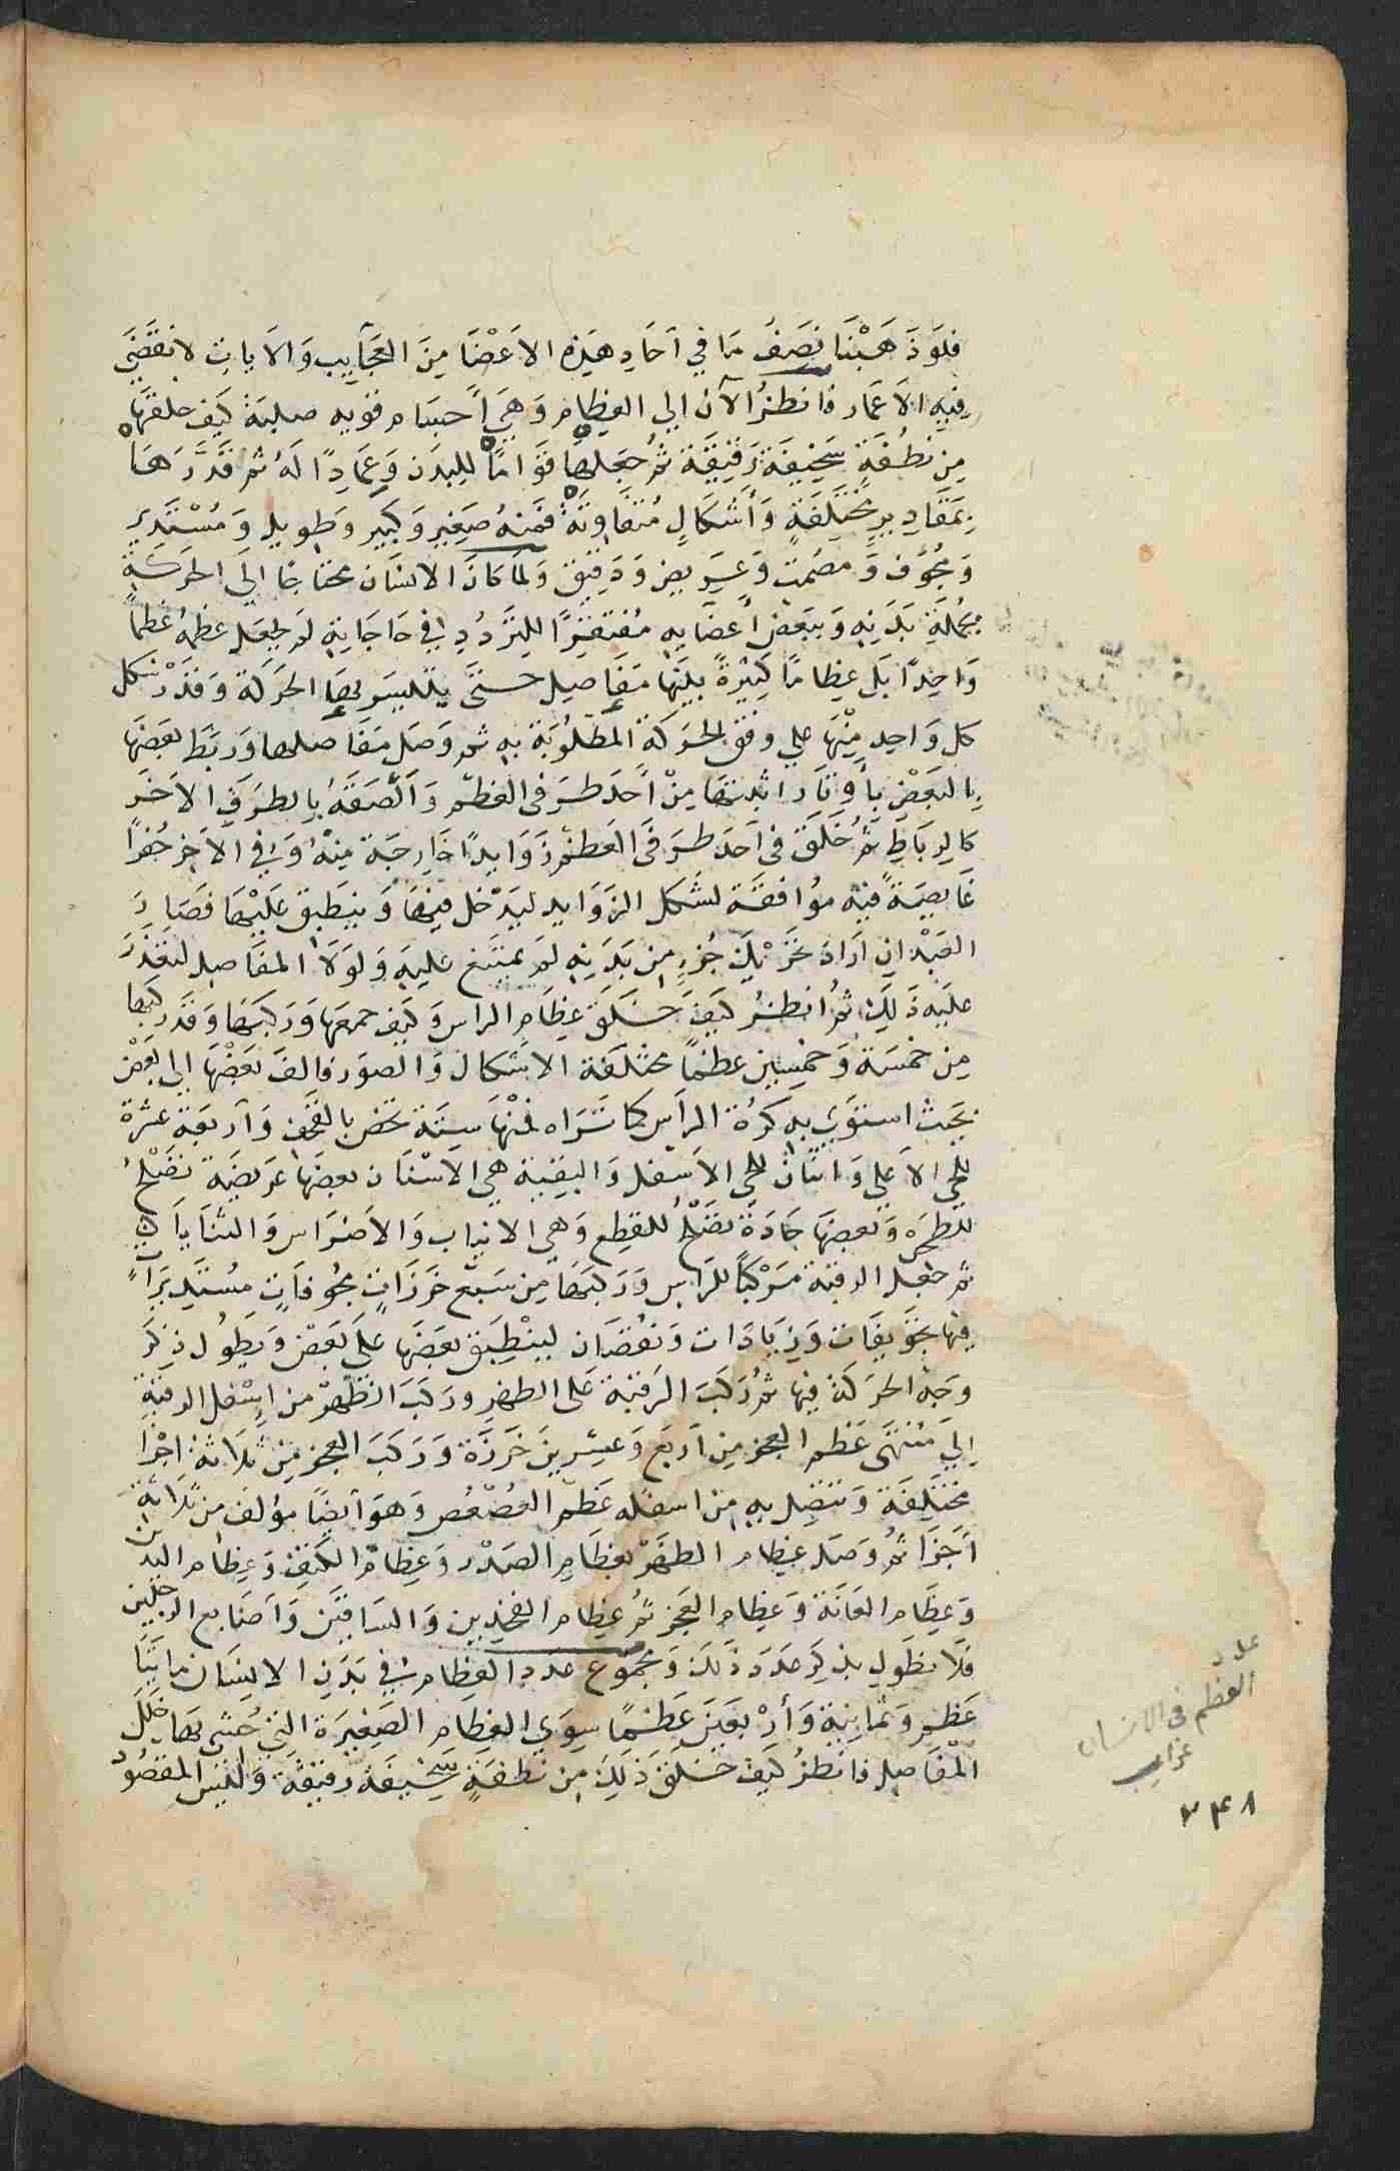 فلو ذهبنا نصف ما في آحاد هذه الاعضا من العجآيب والايات لانقضي
فيه الاعمار فانظر الآن الي العظام وهي اجسام قويه صلبة كيف خلقها
من نطفة سخيفة رقيقة ثم جعلها قوامًا للبدن وعمادًا له ثم قدّرها
بمقادير مختلفة وأشكال متفاوتة فمنه صغير وكبير وطويل ومستدير
ومجوف ومصمت وعريض ودقيق ولما كان الانسان محتاجا الي الحركة
بجملة بدنه وببعض أعضايه مفتقرًا للتردد في حاجاته لم يجعل عظمه عظمًا
واحدًا بل عظامًا كثيرة بينها مفاصيل حتى يتيسر بها الحركة وقدّر شكل
كل واحد منها علي وفق الحركة المطلوبة به ثم وصل مفاصلها وربط بعضها
بالبعض بأوتار اثبتها من أحد طرفى العظم والصقه بالطرف الاخر
كالرباط ثم خلق فى احد طرفى العظم زوايدًا خارجة منه وفي الآخر حفرًا
غايصة فيه موافقة لشكل الزوايد ليدخل فيها وينطبق عليها فصار
العبد ان اراد تحريك جزء من بدنه لم يمتنع عليه ولولا المفاصل لتعذر
عليه ذلك ثم انظر كيف خلق عظام الراس وكيف جمعها وركبها وقد ركبها
من خمسة وخمسين عظمًا مختلفة الاشكال والصور فالف بعضها الي بعض
بحيث استوي به كرة الرأس كما تراه فمنها ستة تخص بالقحف وأربعة عشرة
للحي الاعلي واثنان للحي الاسفل والبقية هي الاسنان بعضها عريضة تصلح
للطحن وبعضها حادة تصلح للقطع وهي الانياب والاضراس والثنايا
ثم جعل الرقبة مركبًا للراس وركبها من سبع خرزات مجوفات مستديرات
فيها تجويفات وزيادات ونقصان لينطبق بعضها على بعض ويطول ذكر
وجه الحركة فيها ثم ركب الرقبة على الظهر وركب الظهر من اسفل الرقبة
الي منتهى عظم العجز من أربع وعشرين خرزة وركب العجز من ثلاثة اجزا
مختلفة وتتصل به من اسفله عظم العصعص وهو ايضًا مؤلف من ثلاثة
أجزا ثم وصل عظام الظهر بعظام الصدر وعظام الكتف وعظام اليدين
وعظام العانة وعظام العجز ثم عظام الفخذين والساقين واصابع الرجلين
فلا نطول بذكر عدد ذلك ومجموع عدد العظام في بدن الانسان مايتا
عظم وثمانية وأربعين عظمًا سوي العظام الصغيرة التي حُشي بها خلل
المفاصل فانظر كيف خلق ذلك من نطفة سخيفة رقيقة وليس المقصود
عدد
العظم فى الانسان
٢٤٨